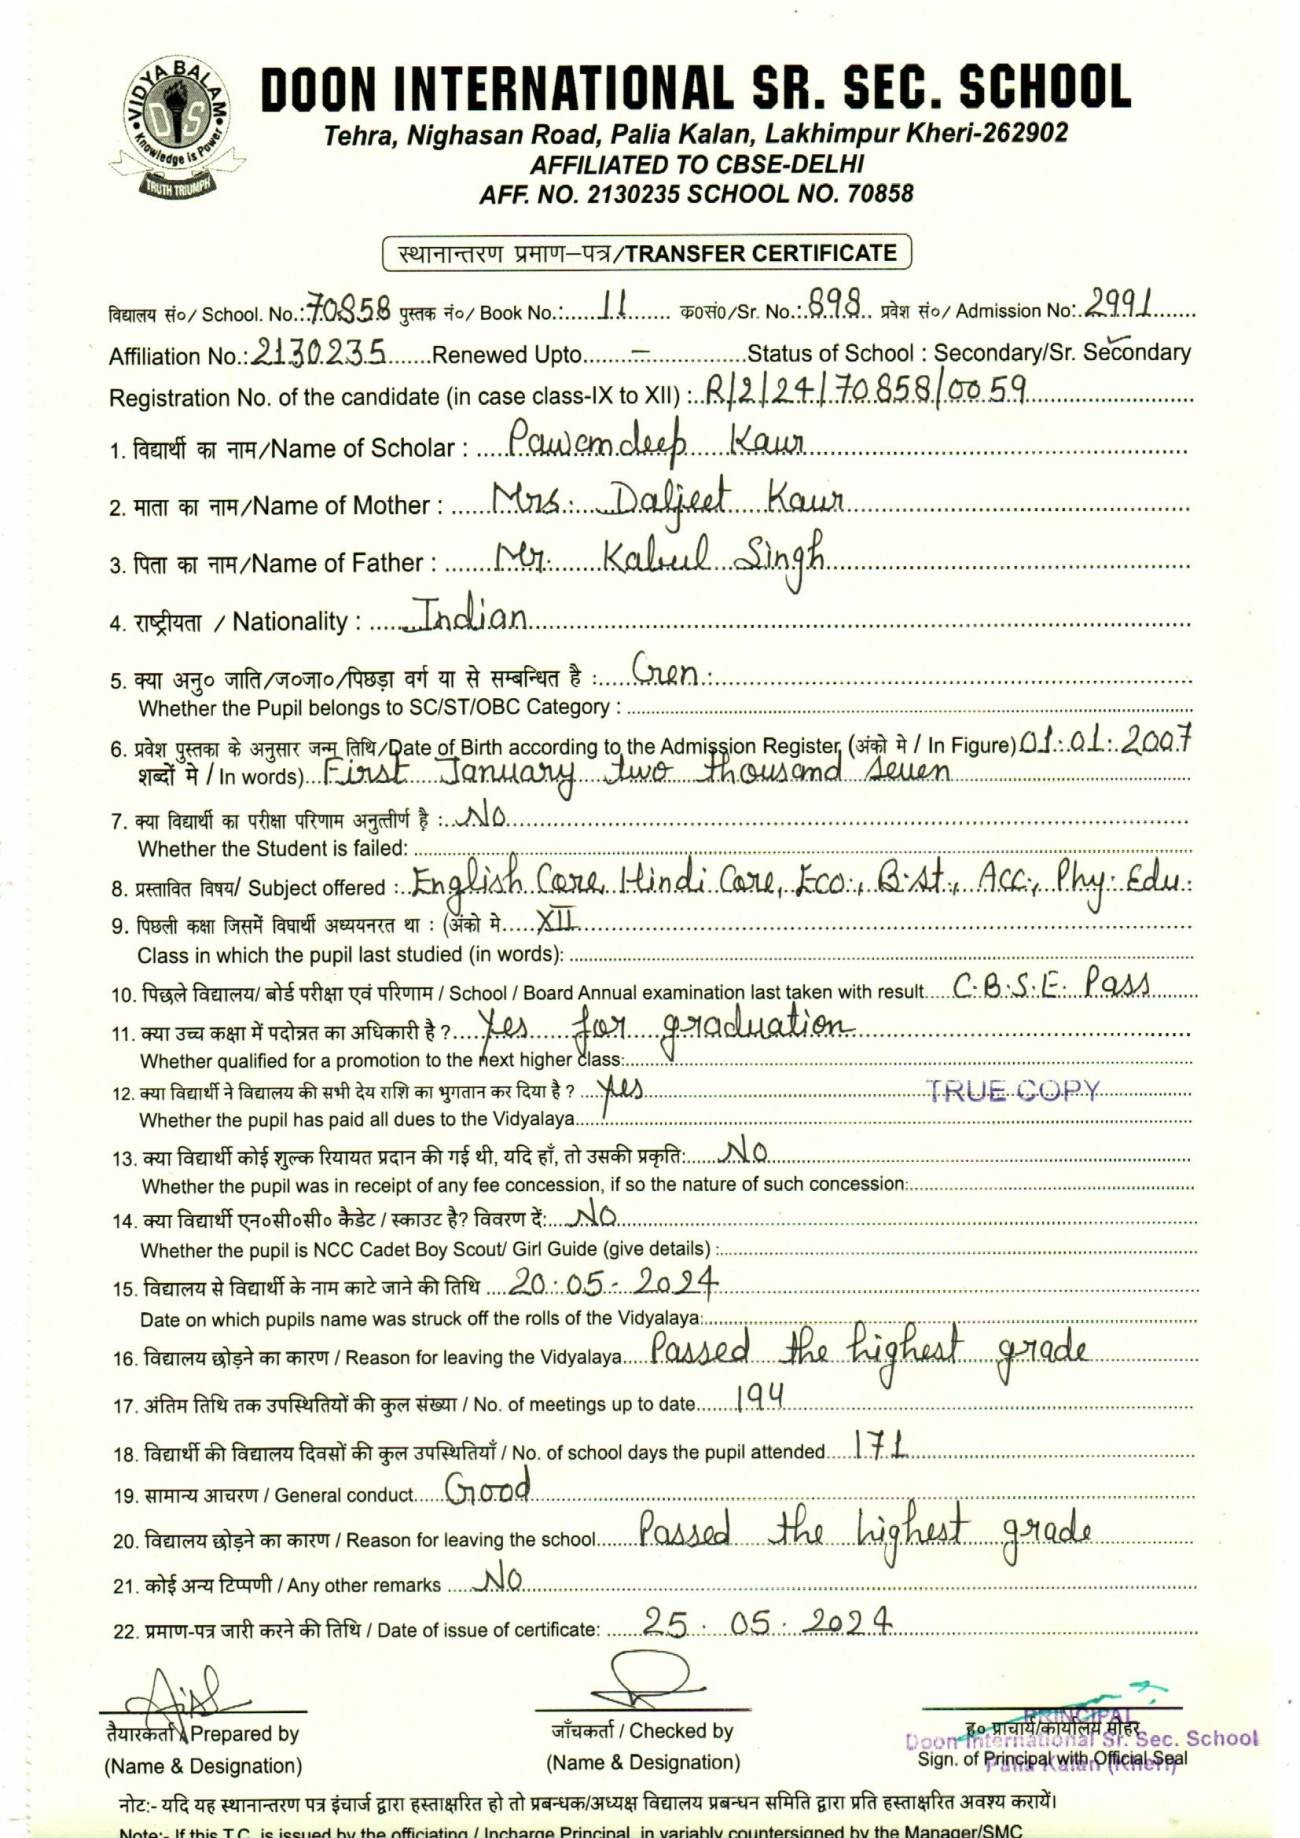 VIDYA BALAM
DIS
Knowledge is Power
TRUTH TRIUMPH
DOON INTERNATIONAL SR. SEC. SCHOOL
Tehra, Nighasan Road, Palia Kalan, Lakhimpur Kheri-262902
AFFILIATED TO CBSE-DELHI
AFF. NO. 2130235 SCHOOL NO. 70858
स्थानान्तरण प्रमाण–पत्र/TRANSFER CERTIFICATE
विद्यालय सं०/ School. No.: 70858 पुस्तक नं०/ Book No.: 11 क०सं०/Sr. No.: 898 प्रवेश सं०/ Admission No: 2991
Affiliation No.: 2130235 Renewed Upto – Status of School : Secondary/Sr. Secondary
Registration No. of the candidate (in case class-IX to XII) : R/2/24/70858/0059
1. विद्यार्थी का नाम/Name of Scholar : Pawandeep Kaur
2. माता का नाम/Name of Mother : Mrs. Daljeet Kaur
3. पिता का नाम/Name of Father : Mr. Kabul Singh
4. राष्ट्रीयता / Nationality : Indian
5. क्या अनु० जाति/ज०जा०/पिछड़ा वर्ग या से सम्बन्धित है : Gen.
Whether the Pupil belongs to SC/ST/OBC Category :
6. प्रवेश पुस्तका के अनुसार जन्म तिथि/Date of Birth according to the Admission Register (अंको मे / In Figure) 01.01.2007
शब्दों मे / In words) First January two thousand seven
7. क्या विद्यार्थी का परीक्षा परिणाम अनुत्तीर्ण है : No
Whether the Student is failed:
8. प्रस्तावित विषय/ Subject offered : English Core, Hindi Core, Eco., B.st., Acc., Phy. Edu.
9. पिछली कक्षा जिसमें विघार्थी अध्ययनरत था : (अंको मे XII
Class in which the pupil last studied (in words):
10. पिछले विद्यालय/ बोर्ड परीक्षा एवं परिणाम / School / Board Annual examination last taken with result C.B.S.E. Pass
11. क्या उच्च कक्षा में पदोन्नत का अधिकारी है ? Yes for graduation
Whether qualified for a promotion to the next higher class:
12. क्या विद्यार्थी ने विद्यालय की सभी देय राशि का भुगतान कर दिया है ? Yes TRUE COPY
Whether the pupil has paid all dues to the Vidyalaya
13. क्या विद्यार्थी कोई शुल्क रियायत प्रदान की गई थी, यदि हाँ, तो उसकी प्रकृति: No
Whether the pupil was in receipt of any fee concession, if so the nature of such concession:
14. क्या विद्यार्थी एन०सी०सी० कैडेट / स्काउट है? विवरण दें: No
Whether the pupil is NCC Cadet Boy Scout/ Girl Guide (give details) :
15. विद्यालय से विद्यार्थी के नाम काटे जाने की तिथि 20.05-2024
Date on which pupils name was struck off the rolls of the Vidyalaya:
16. विद्यालय छोड़ने का कारण / Reason for leaving the Vidyalaya Passed the highest grade
17. अंतिम तिथि तक उपस्थितियों की कुल संख्या / No. of meetings up to date 194
18. विद्यार्थी की विद्यालय दिवसों की कुल उपस्थितियाँ / No. of school days the pupil attended 171
19. सामान्य आचरण / General conduct Good
20. विद्यालय छोड़ने का कारण / Reason for leaving the school Passed the highest grade
21. कोई अन्य टिप्पणी / Any other remarks No
22. प्रमाण-पत्र जारी करने की तिथि / Date of issue of certificate: 25.05.2024
तैयारकर्ता / Prepared by जाँचकर्ता / Checked by ह० प्राचार्य/कार्यालय मोहर
PRINCIPAL
Doon International Sr. Sec. School
Palia Kalan (Kheri)
(Name & Designation) (Name & Designation) Sign. of Principal with Official Seal
नोटः- यदि यह स्थानान्तरण पत्र इंचार्ज द्वारा हस्ताक्षरित हो तो प्रबन्धक/अध्यक्ष विद्यालय प्रबन्धन समिति द्वारा प्रति हस्ताक्षरित अवश्य करायें।
Note:- If this T.C. is issued by the officiating / Incharge Principal, in variably countersigned by the Manager/SMC